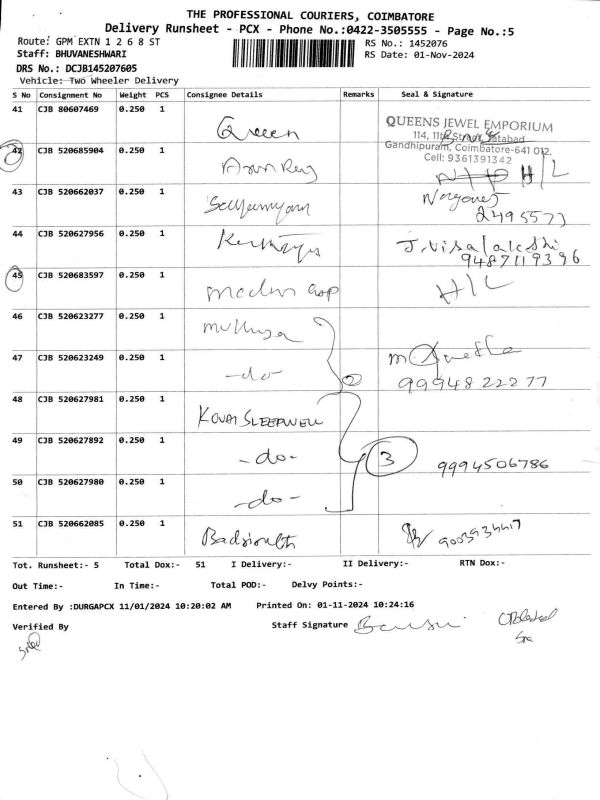 THE PROFESSIONAL COURIERS, COIMBATORE
Delivery Runsheet - PCX - Phone No.:0422-3505555 - Page No.:5
Route: GPM EXTN 1 2 6 8 ST
RS No.: 1452076
Staff: BHUVANESHWARI
RS Date: 01-Nov-2024
DRS No.: DCJB145207605
Vehicle:-Two Wheeler Delivery
S No Consignment No Weight PCS Consignee Details Remarks Seal & Signature
41 CJB 80607469 0.250 1 Queen
QUEENS JEWEL EMPORIUM
Gandhipuram, Coimbatore-641 012.
Cell: 9361391342
42 CJB 520685904 0.250 1 H/L
43 CJB 520662037 0.250 1
2495573
44 CJB 520627956 0.250 1 J.Visalakshi
9487119396
45 CJB 520683597 0.250 1 H/L
46 CJB 520623277 0.250 1
47 CJB 520623249 0.250 1 -do- 2
9994822277
48 CJB 520627981 0.250 1 KOVAI SLEEPWELL
49 CJB 520627892 0.250 1 -do- 3 9994506786
50 CJB 520627980 0.250 1 -do-
51 CJB 520662085 0.250 1
Tot. Runsheet:- 5 Total Dox:- 51 I Delivery:- II Delivery:- RTN Dox:-
Out Time:- In Time:- Total POD:- Delvy Points:-
Entered By :DURGAPCX 11/01/2024 10:20:02 AM Printed On: 01-11-2024 10:24:16
Verified By Staff Signature